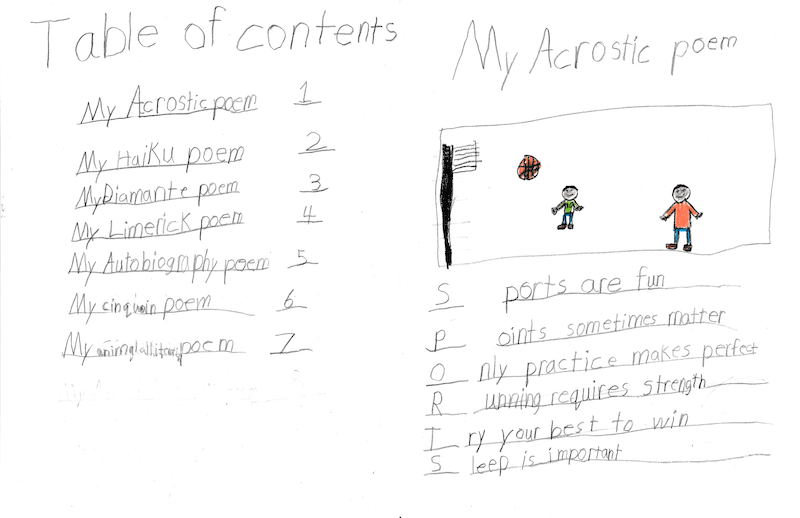 Table of contents
My Acrostic poem 1
My Haiku poem 2
My Diamante poem 3
My Limerick poem 4
My Autobiography poem 5
My cinquin poem 6
My poem 7
My Acrostic poem
Sports are fun
Points sometimes matter
Only practice makes perfect
Running requires strength
Try your best to win
Sleep is important